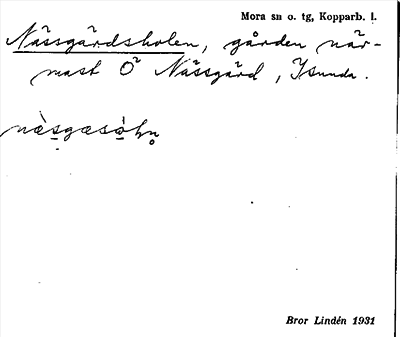 Mora sn o. tg, Kopparb. l.
Näsgårdsholen, gården när-
mast Ö Näsgård, Isunda.
Bror Lindén 1931